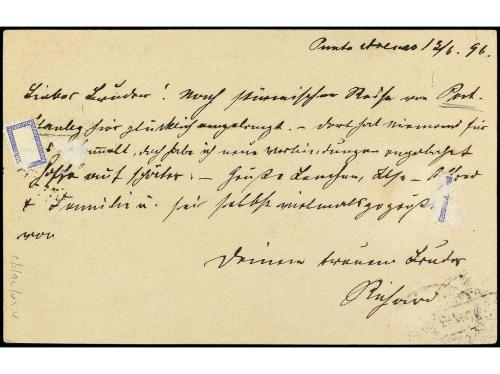 Punta Arenas 13/6. 96.
Lieber Bruder! Nach stürmischer Reise von Port-
Stanley hier glücklich angelangt. – Dort hat niemand für
doch habe ich neue Verbindungen angebahnt
hoffe auf später. – Grüße Lenchen, Else –
& Familie u. sei selbst vielmals gegrüßt
von
Deinem treuen Bruder
Richard